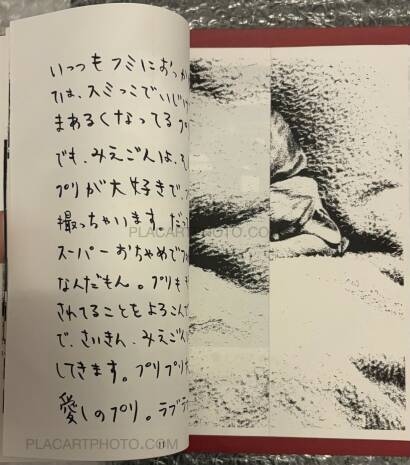 いっつもフミにおっか
ては、スミっこでいじい
まあるくなってるプ
でも、みえごんは、そ
プリが大好きで、
撮っちゃいます。だっ
スーパーおちゃめでプ
なんだもん。プリもキ
されてることをよろこん
で、さいきん、みえごん
してきます。プリプリ
愛しのプリ。ラブラ
11
PLACARTPHOTO.COM
PLACARTPHOTO.COM
PLACARTPHOTO.COM